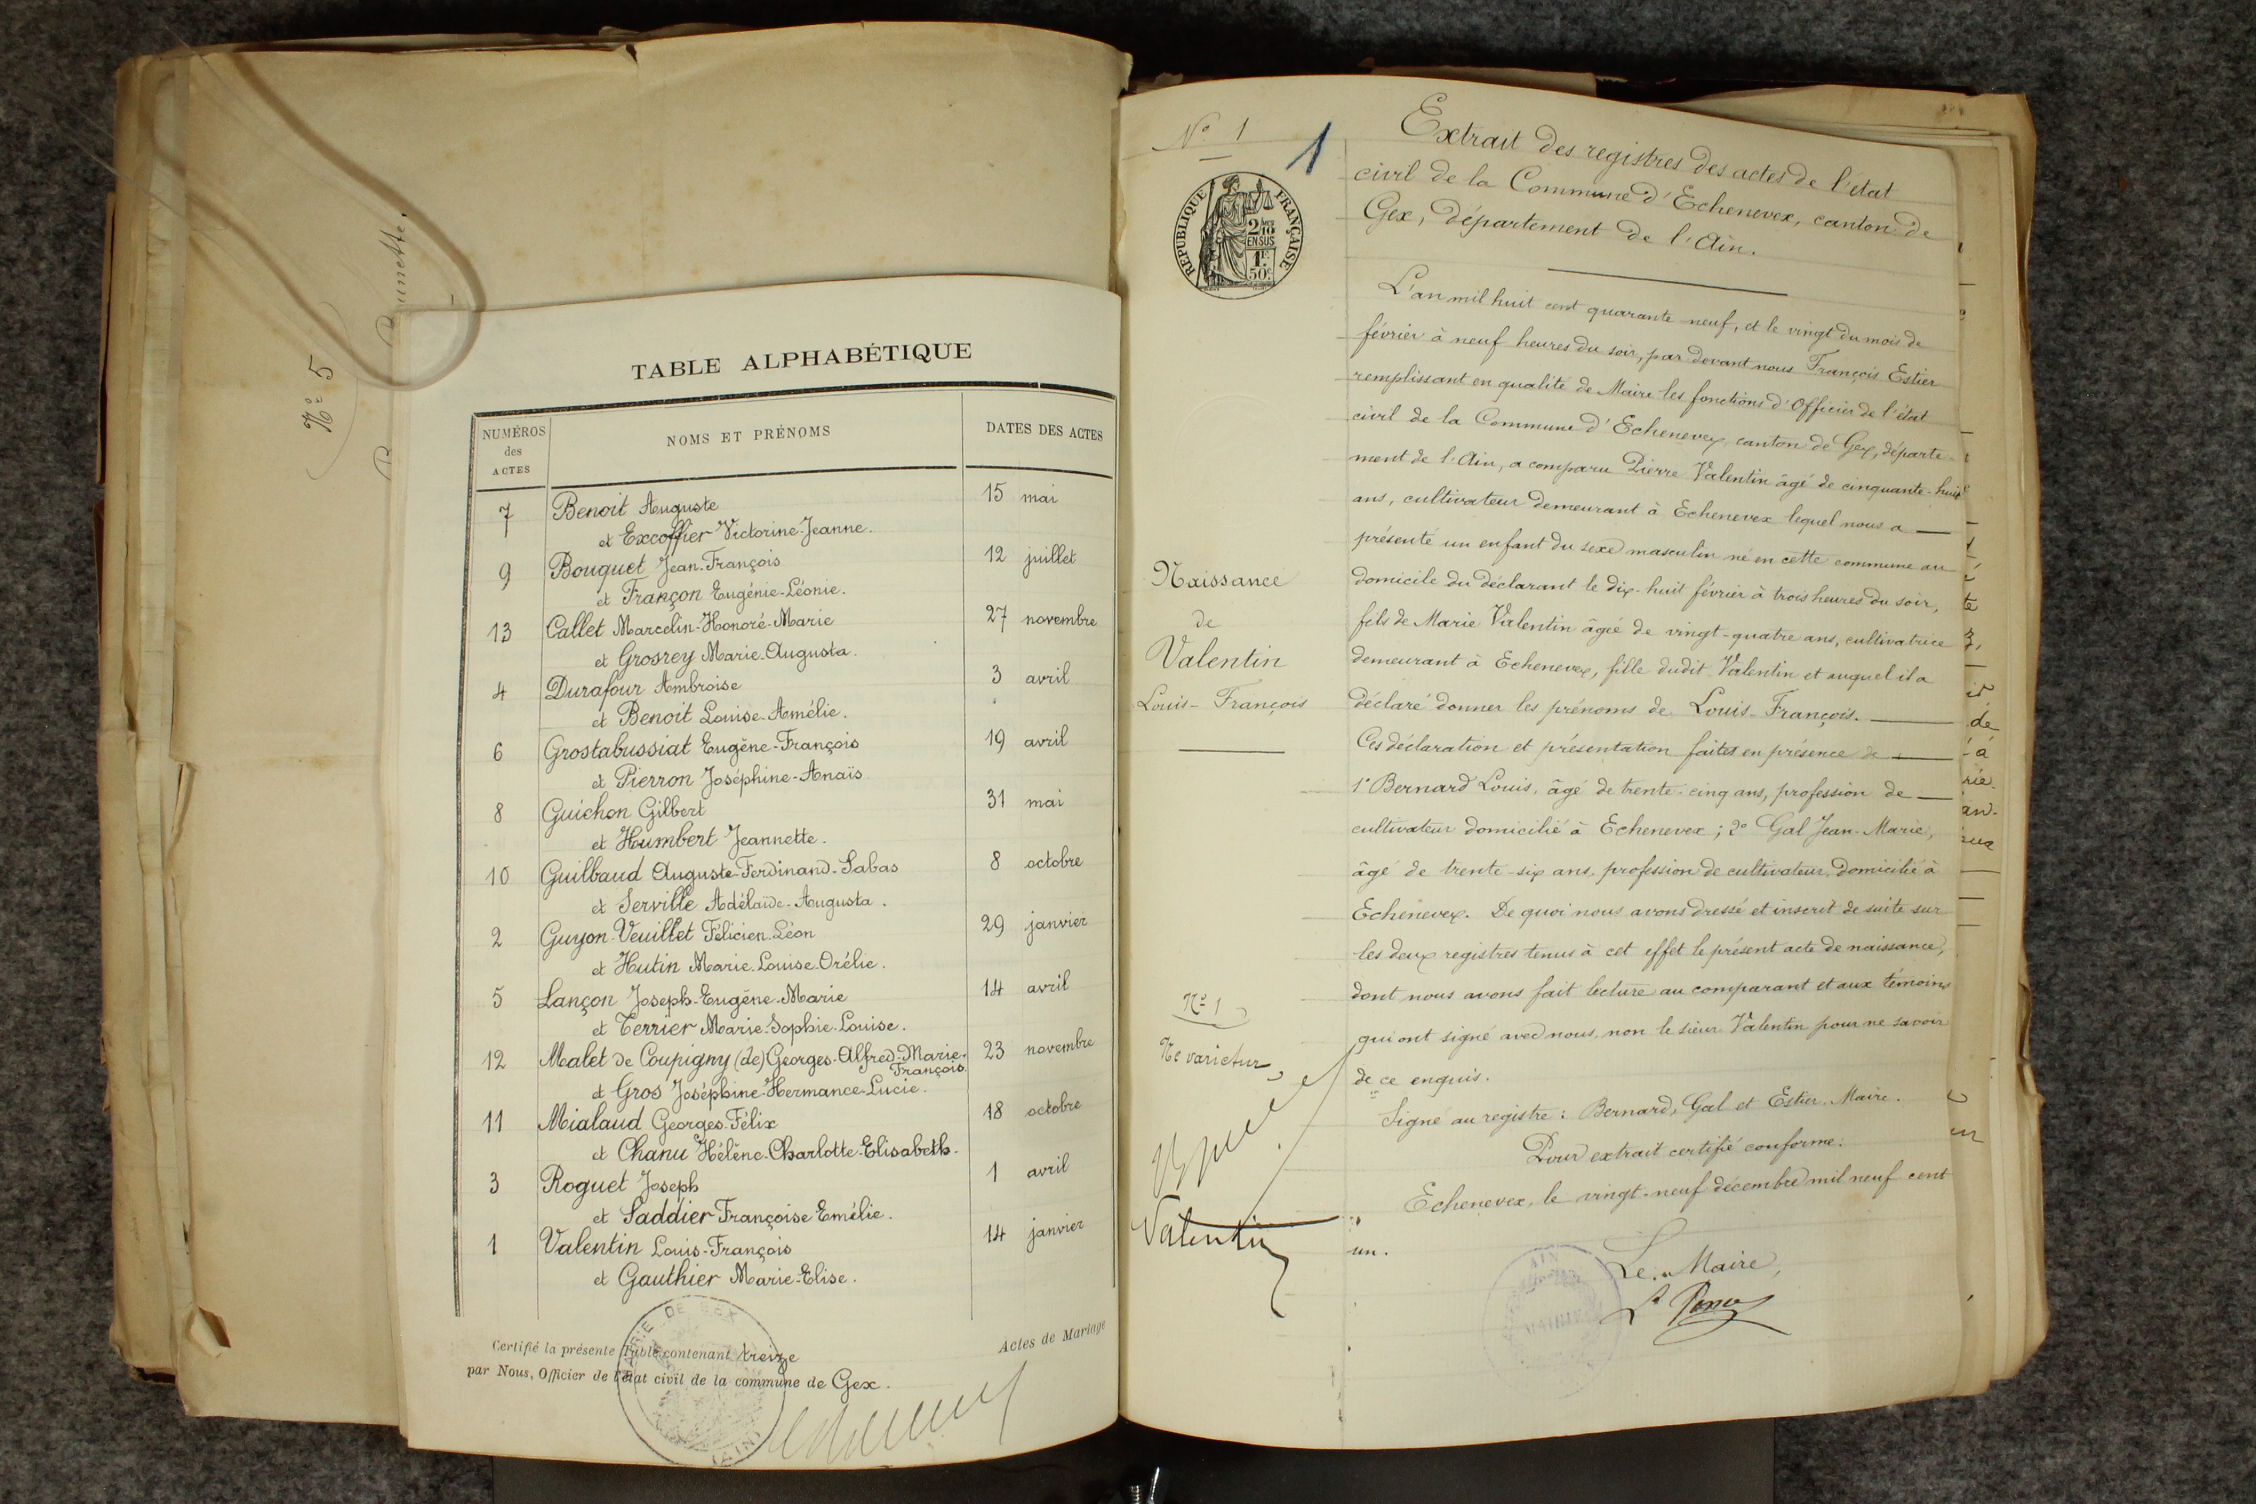 N° 5
TABLE ALPHABÉTIQUE
NUMÉROS des ACTES
NOMS ET PRÉNOMS
DATES DES ACTES
7 Benoit Auguste 15 mai
et Excoffier Victorine-Jeanne.
9 Bouquet Jean-François 12 juillet
et Françon Eugénie-Léonie.
13 Callet Marcelin-Honoré-Marie 27 novembre
et Grosrey Marie-Augusta.
4 Durafour Ambroise 3 avril
et Benoit Louise-Amélie.
6 Grostabussiat Eugène-François 19 avril
et Pierron Joséphine-Anaïs
8 Guichon Gilbert 31 mai
et Humbert Jeannette.
10 Guilbaud Auguste-Ferdinand-Sabas 8 octobre
et Serville Adélaïde-Augusta.
2 Guyon-Veuillet Félicien-Léon 29 janvier
et Hutin Marie-Louise-Orélie.
5 Lançon Joseph-Eugène-Marie 14 avril
et Terrier Marie-Sophie-Louise.
12 Malet de Coupigny (de) Georges-Alfred-Marie- 23 novembre
François.
et Gros Joséphine-Hermance-Lucie.
11 Mialaud Georges-Félix 18 octobre
et Chanu Hélène-Charlotte-Elisabeth.
3 Roguet Joseph 1 avril
et Saddier Françoise Emélie.
1 Valentin Louis-François 14 janvier
et Gauthier Marie-Elise.
Certifié la présente Table contenant treize Actes de Mariage
par Nous, Officier de l'état civil de la commune de Gex.
MAIRIE DE GEX
(AIN)
N° 1
1
RÉPUBLIQUE FRANÇAISE
2/10 EN SUS
1F 50c
Extrait des registres des actes de l'état
civil de la Commune d'Echenevex, canton de
Gex, département de l'Ain.
L'an mil huit cent quarante neuf, et le vingt du mois de
février à neuf heures du soir, par devant nous François Estier
remplissant en qualité de Maire les fonctions d'Officier de l'état
civil de la Commune d'Echenevex, canton de Gex, départe-
ment de l'Ain, a comparu Pierre Valentin âgé de cinquante-huit
ans, cultivateur demeurant à Echenevex lequel nous a
présenté un enfant du sexe masculin né en cette commune au
domicile du déclarant le dix-huit février à trois heures du soir,
fils de Marie Valentin âgée de vingt-quatre ans, cultivatrice
demeurant à Echenevex, fille dudit Valentin et auquel il a
déclaré donner les prénoms de Louis-François.
Ces déclaration et présentation faites en présence de
1° Bernard Louis, âgé de trente-cinq ans, profession de
cultivateur domicilié à Echenevex; 2° Gal Jean-Marie,
âgé de trente-six ans, profession de cultivateur, domicilié à
Echenevex. De quoi nous avons dressé et inscrit de suite sur
les deux registres tenus à cet effet le présent acte de naissance,
dont nous avons fait lecture au comparant et aux témoins
qui ont signé avec nous, non le sieur Valentin pour ne savoir
de ce enquis.
Signé au registre: Bernard, Gal et Estier, Maire.
Pour extrait certifié conforme:
Echenevex, le vingt-neuf décembre mil neuf cent
un.
Le Maire,
Naissance
de
Valentin
Louis-François
N° 1
Ne varietur,
Valentin